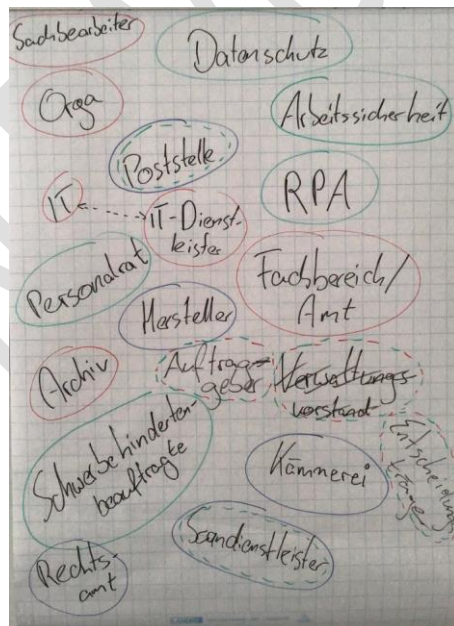 Sachbearbeiter
Datenschutz
Orga
Arbeitssicherheit
Poststelle
RPA
IT
IT-Dienst-
leister
Personalrat
Fachbereich/
Amt
Hersteller
Archiv
Auftrag-
geber
Verwaltungs-
vorstand
Entscheidungs-
träger
Schwerbehinderten-
beauftragte
Kämmerei
Scandienstleister
Rechts-
amt